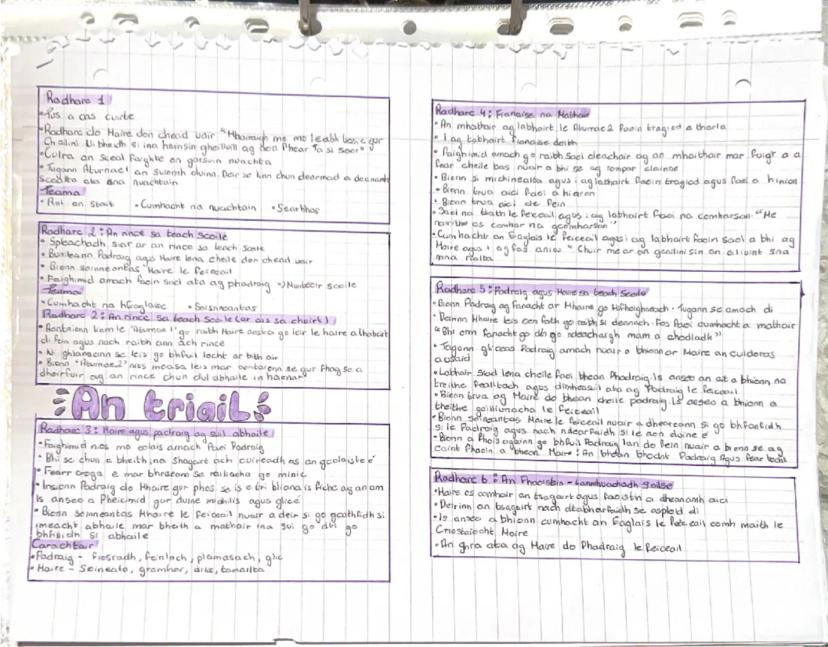 Radharc 1
•Tús a cás cuirte
•Radharc do Maire don chead uair "Mharaigh me mo leabh
sí ina hainsin gheibinn ag den Phear Ta si saor"
•Cultra an sceal
•Tagann Aturnae 1 an chun dearmad a deanamh
ata sna nuachtain
Teama
•Rol an stait •Cumhacht na nuachtain •Searbhas
Radharc 2: An rince sa teach scoile
•Spleachadh siar ar an rince sa teach scoile
•Buaileann Padraig agus Maire lena cheile don chead uair
•Bionn soinneantas Maire le feiceail
•Faighimid amach faoin saol ata ag phadraig → Muinteoir scoile
Teama
•Cumhacht na hEaglaise •Soinneantas
Radharc 2: An rince sa teach scoile (ar ais sa chuirt)
go raibh Maire
di fein agus nach raibh ann ach rince
•Ni ghlacann se leis go bhfuil locht ar bith air
•Bionn "Aturnae 2" nios measa leis mar se gur fhag se a
dheirfiur ag an rince chun dul abhaile in
An triail
Radharc 3: Maire agus padraig ag siul abhaile
•Faighimid nios mo eolais amach faoi Padraig
•Bhi se chun a bheith ina shagart ach cuireadh as an gcolaiste é
•Fearr croga e mar bhriseann se rialacha go minic
•Insionn Padraig do Mhaire gur phos se is e tri bliana is fiche ag an am
Is anseo a fheicimid gur duine mislis agus glice
•Bionn soinneantas Mhaire le feiceail nuair a deir si go gcaithfidh si
imeacht abhaile mar bheith a mathair ina sui go dti go
bhfillidh si abhaile
Carachtair
•Padraig - fiosradh, feinleach, plamasach, glic
•Maire - Seineata, gramhor, dilis, tamailta
Radharc 4: Fianaise na Mathair
•An mhathair ag labhairt le Aturnae 2 faoin tragoid a tharla
•I ag tabhairt fianaise deith
•Faighimid amach go raibh saol deacair ag an mhathair mar fuair a
fear cheile bas nuair a bhi se ag iompar clainne
•Bionn si michineatla agus i ag labhairt faoin tragoid agus faoi a hinion
•Bionn brua aici faoi a hiaron
•Bionn brua aici di fein
le feiceail agus i ag labhairt faoi na comharsan "He
comhar na gcomharsan"
•Cumhacht an Eaglais le feiceail agus i ag labhairt faoin saol a bhi ag
Maire agus i ag fas anios "Chuir me ar an gcailin sin an oiliuint sna
mna rialta
Radharc 5: Padraig agus Maire sa teach Scoile
•Bionn Padraig ag fanacht ar Mhaire go Tugann se amach di
Maire leis cen fath go raibh si deanach. Fos faoi cumhacht a mathair
"Bhi orm fanacht go dti go ndeachaigh mam a chodladh"
•Tagann gliceas Padraig amach nuair a bhionn ar Maire an culdoras
a usaid
•Labhair siad lena cheile faoi bhean Phadraig. Is anseo an ait a bhionn na
treithe fealltach agus dimheasuil ata ag Padraig le feiceail
•Bionn brua ag Maire do bhean cheile padraig. Is anseo a bhionn a
threithe goilliunacha le feiceail
•Bionn soinneantas Maire le feiceail nuair a dhearann si go bhfanfidh
si le Padraig agus nach ndearfaidh si le aon duine é
•Bionn a fhois againn go bhfuil Padraig lan do fein nuair a bionn se ag
caint Phaoin a bhean Maire: An bhean bhocht Padraig: Agus fear bocht
Radharc 6: An Fhaoistin - Lamhnachadh Soilse
•Maire os comhair an tsagairt agus faoistin a dheanamh aici
•Deirinn an tsagairt nach dtabharfaidh se asploid di
•Is anseo a bhionn cumhacht an Eaglais le feiceail comh maith le
Criostaiocht Maire
•An ghra ata ag Maire do Phadraig le feiceail